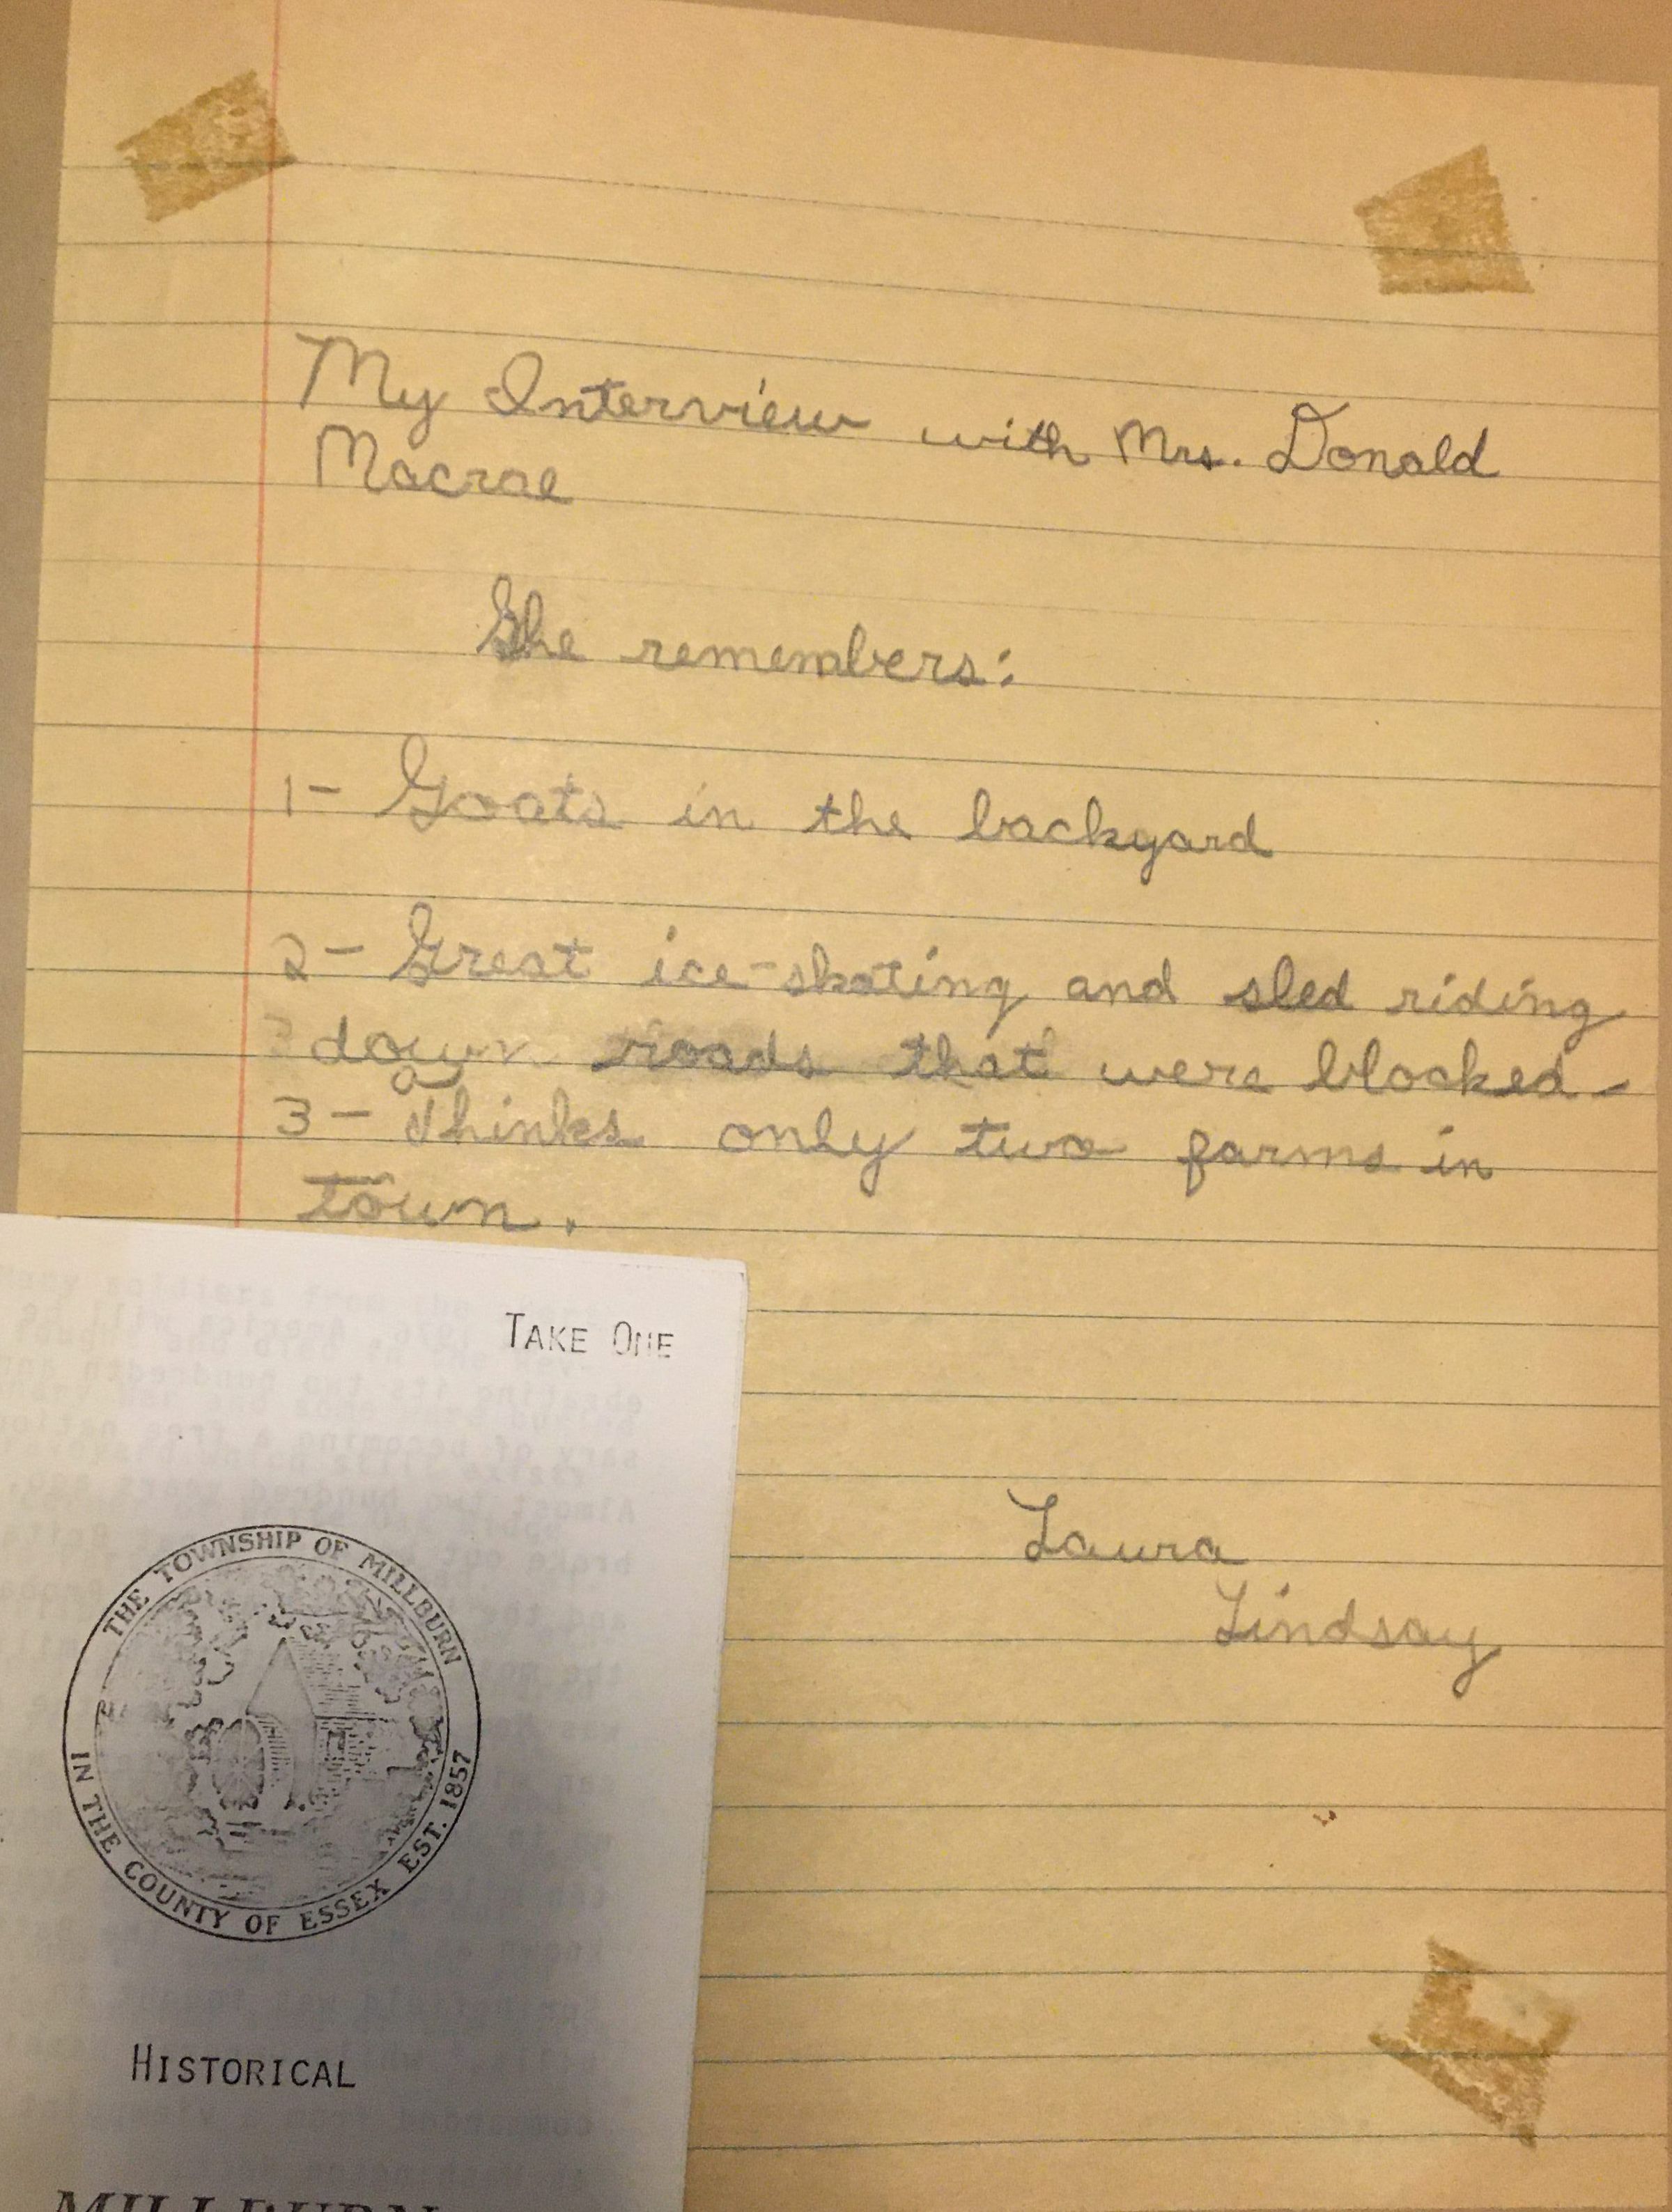 My Interview with Mrs. Donald
Macrae
She remembers:
1- Goats in the backyard
2- Great ice-skating and sled riding
down roads that were blocked-
3- Thinks only two farms in
town.
Laura
Lindsay
TAKE ONE
THE TOWNSHIP OF MILLBURN
IN THE COUNTY OF ESSEX EST. 1857
HISTORICAL
MILLBURN